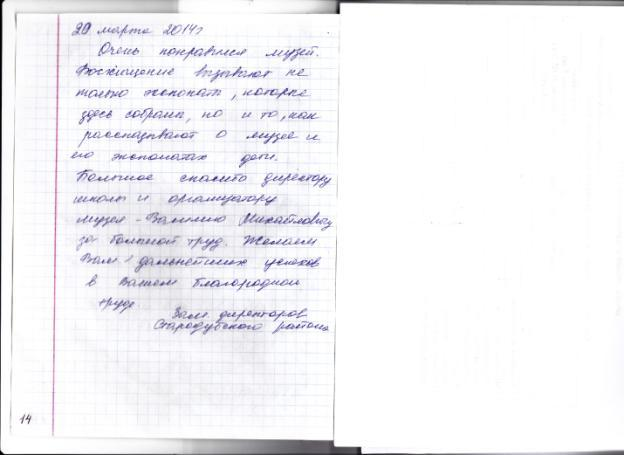 20 марта 2014г
Очень понравился музей.
Восхищение вызывают не
только экспонаты, которые
здесь собраны, но и то, как
рассказывают о музее и
его экспонатах дети.
Большое спасибо директору
школы и организатору
музея - Василию Михайловичу
за большой труд. Желаем
Вам дальнейших успехов
в Вашем благородном
труде
Зам. директоров
Стародубского района
14